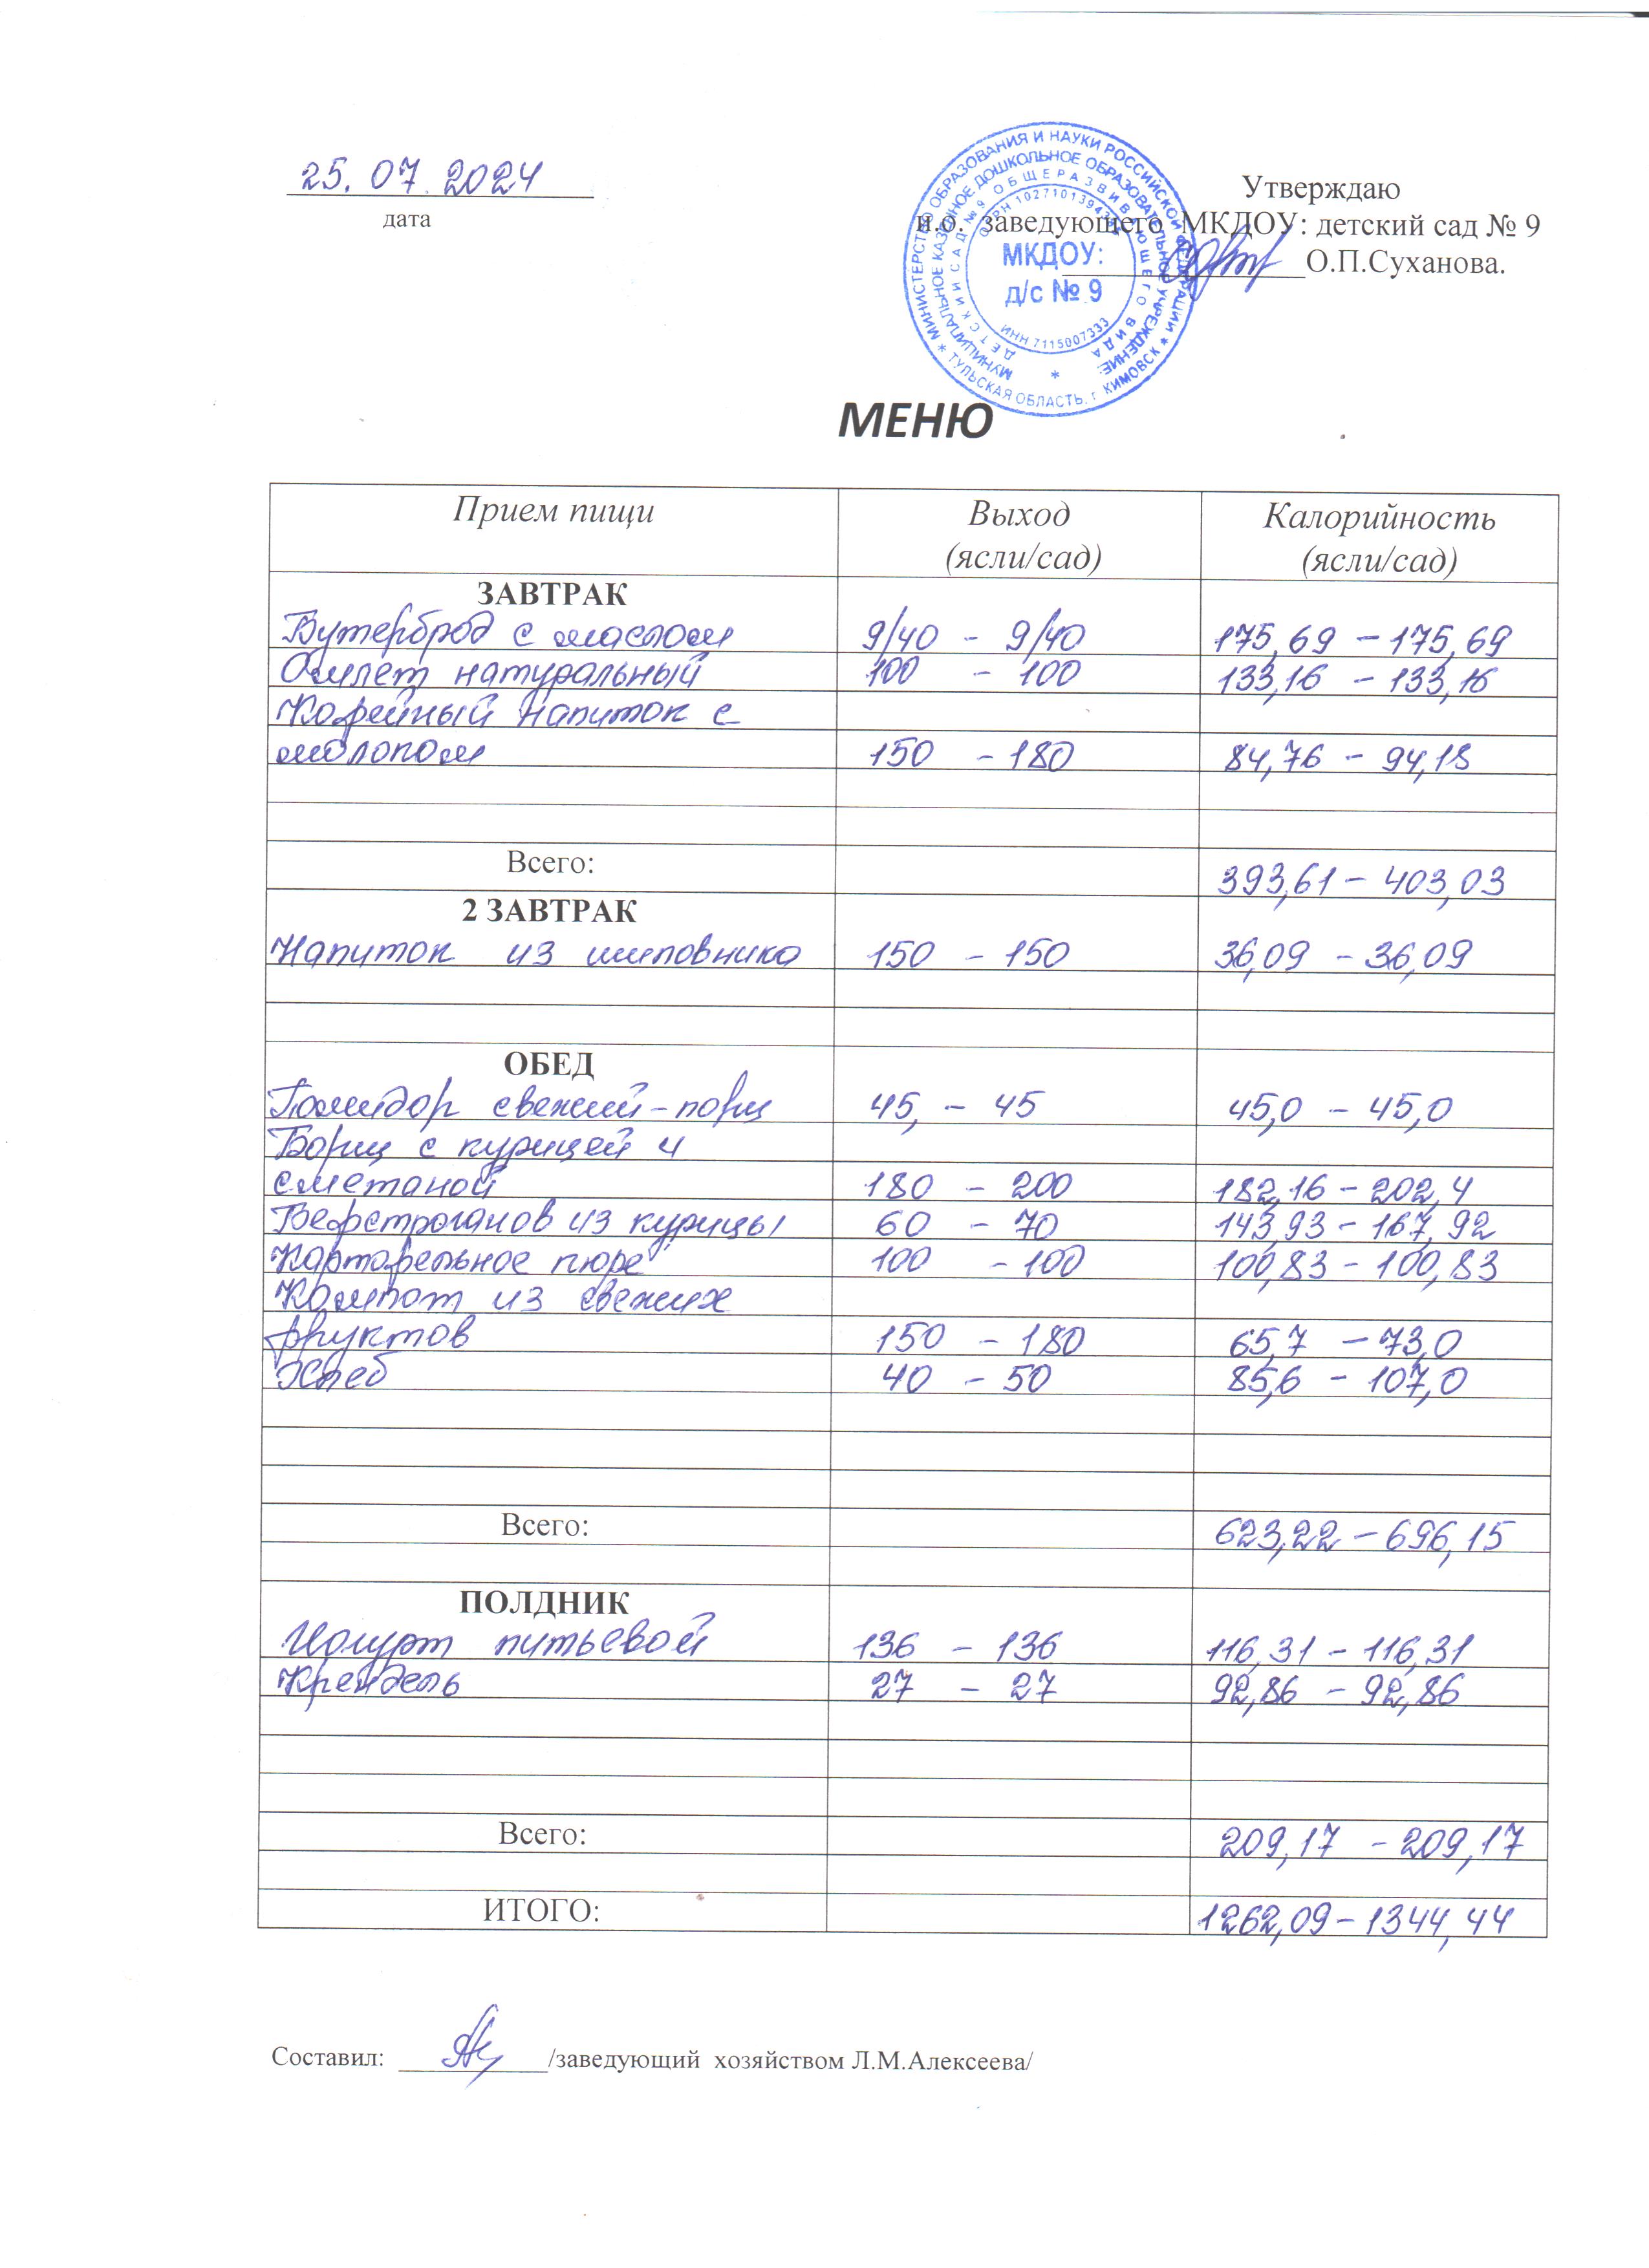 25.07.2024
дата
Утверждаю
и.о. заведующего МКДОУ: детский сад № 9
О.П.Суханова.
МИНИСТЕРСТВО ОБРАЗОВАНИЯ И НАУКИ РОССИЙСКОЙ ФЕДЕРАЦИИ * ТУЛЬСКАЯ ОБЛАСТЬ. г. КИМОВСК *
МУНИЦИПАЛЬНОЕ КАЗЕННОЕ ДОШКОЛЬНОЕ ОБРАЗОВАТЕЛЬНОЕ УЧРЕЖДЕНИЕ:
ДЕТСКИЙ САД № 9 ОБЩЕРАЗВИВАЮЩЕГО ВИДА
ИНН 7115007333
МКДОУ:
д/с № 9
МЕНЮ
Прием пищи Выход Калорийность
(ясли/сад) (ясли/сад)
ЗАВТРАК
Бутерброд с маслом 9/40 - 9/40 175,69 - 175,69
Омлет натуральный 100 - 100 133,16 - 133,16
Кофейный напиток с
молоком 150 - 180 84,76 - 94,18
Всего: 393,61 - 403,03
2 ЗАВТРАК
Напиток из шиповника 150 - 150 36,09 - 36,09
ОБЕД
Помидор свежий - порц 45, - 45 45,0 - 45,0
Борщ с курицей и
сметаной 180 - 200 182,16 - 202,4
Бефстроганов из курицы 60 - 70 143,93 - 167,92
Картофельное пюре 100 - 100 100,83 - 100,83
Компот из свежих
фруктов 150 - 180 65,7 - 73,0
Хлеб 40 - 50 85,6 - 107,0
Всего: 623,22 - 696,15
ПОЛДНИК
Йогурт питьевой 136 - 136 116,31 - 116,31
Крендель 27 - 27 92,86 - 92,86
Всего: 209,17 - 209,17
ИТОГО: 1262,09 - 1344,44
Составил: /заведующий хозяйством Л.М.Алексеева/